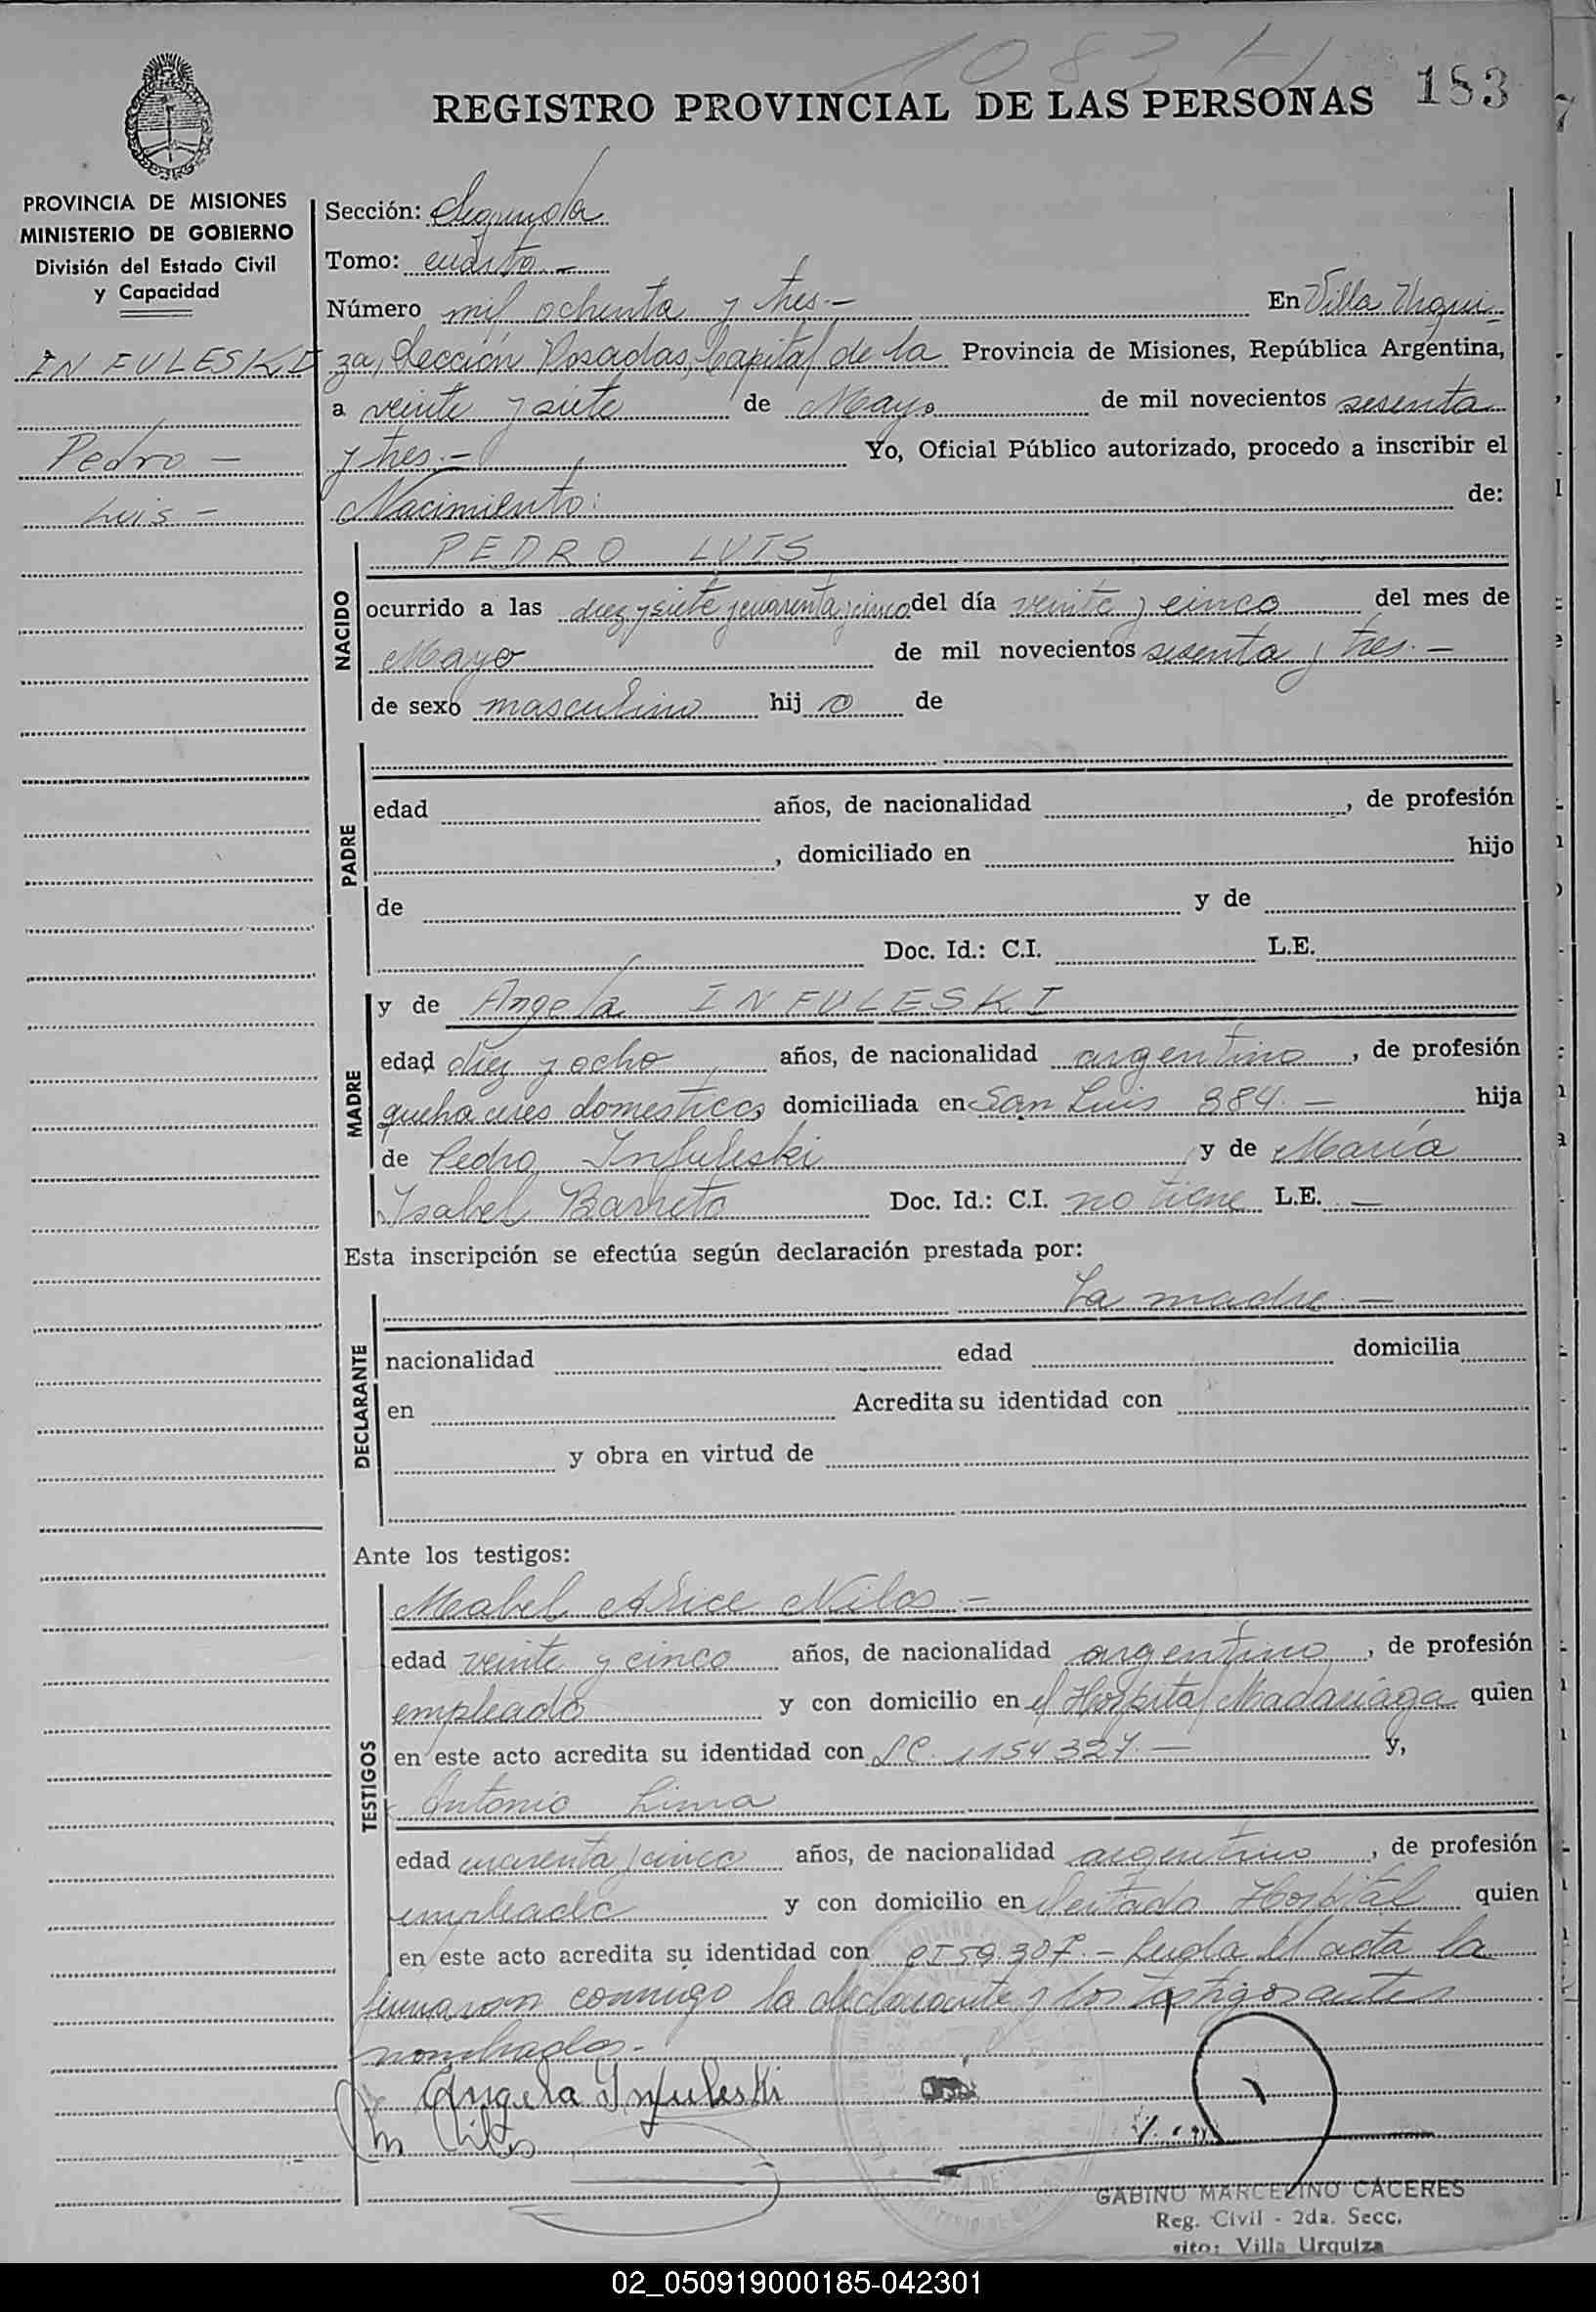 183
REGISTRO PROVINCIAL DE LAS PERSONAS
PROVINCIA DE MISIONES
MINISTERIO DE GOBIERNO
División del Estado Civil
y Capacidad
INFULESKI
Pedro -
Luis -
Sección: Segunda
Tomo: cuarto -
Número mil ochenta y tres - En Villa Urqui-
za, Sección Posadas, Capital de la Provincia de Misiones, República Argentina,
a veinte y siete de Mayo de mil novecientos sesenta
y tres.- Yo, Oficial Público autorizado, procedo a inscribir el
Nacimiento: de:
NACIDO
PEDRO LUIS
ocurrido a las diez y siete y cuarenta y cinco del día veinte y cinco del mes de
Mayo de mil novecientos sesenta y tres.-
de sexo masculino hij o de
PADRE
edad años, de nacionalidad , de profesión
, domiciliado en hijo
de y de
Doc. Id.: C.I. L.E.
MADRE
y de Angela INFULESKI
edad diez y ocho años, de nacionalidad argentino, de profesión
quehaceres domesticos domiciliada en San Luis 884.- hija
de Pedro Infuleski y de María
Isabel Barreto Doc. Id.: C.I. no tiene L.E. -
Esta inscripción se efectúa según declaración prestada por:
DECLARANTE
La madre.-
nacionalidad edad domicilia
en Acredita su identidad con
y obra en virtud de
Ante los testigos:
TESTIGOS
Mabel Alice Nilos -
edad veinte y cinco años, de nacionalidad argentino, de profesión
empleado y con domicilio en el Hospital Madariaga quien
en este acto acredita su identidad con LC. 1154327.- y,
Antonio Lima
edad cuarenta y cinco años, de nacionalidad argentino, de profesión
empleado y con domicilio en Hospital quien
en este acto acredita su identidad con CI 59.307.- Leida el acta la
firmaron conmigo la declarante y los testigos antes
nombrados.-
Angela Infuleski
GABINO MARCELINO CÁCERES
Reg. Civil - 2da. Secc.
sito: Villa Urquiza
02_050919000185-042301